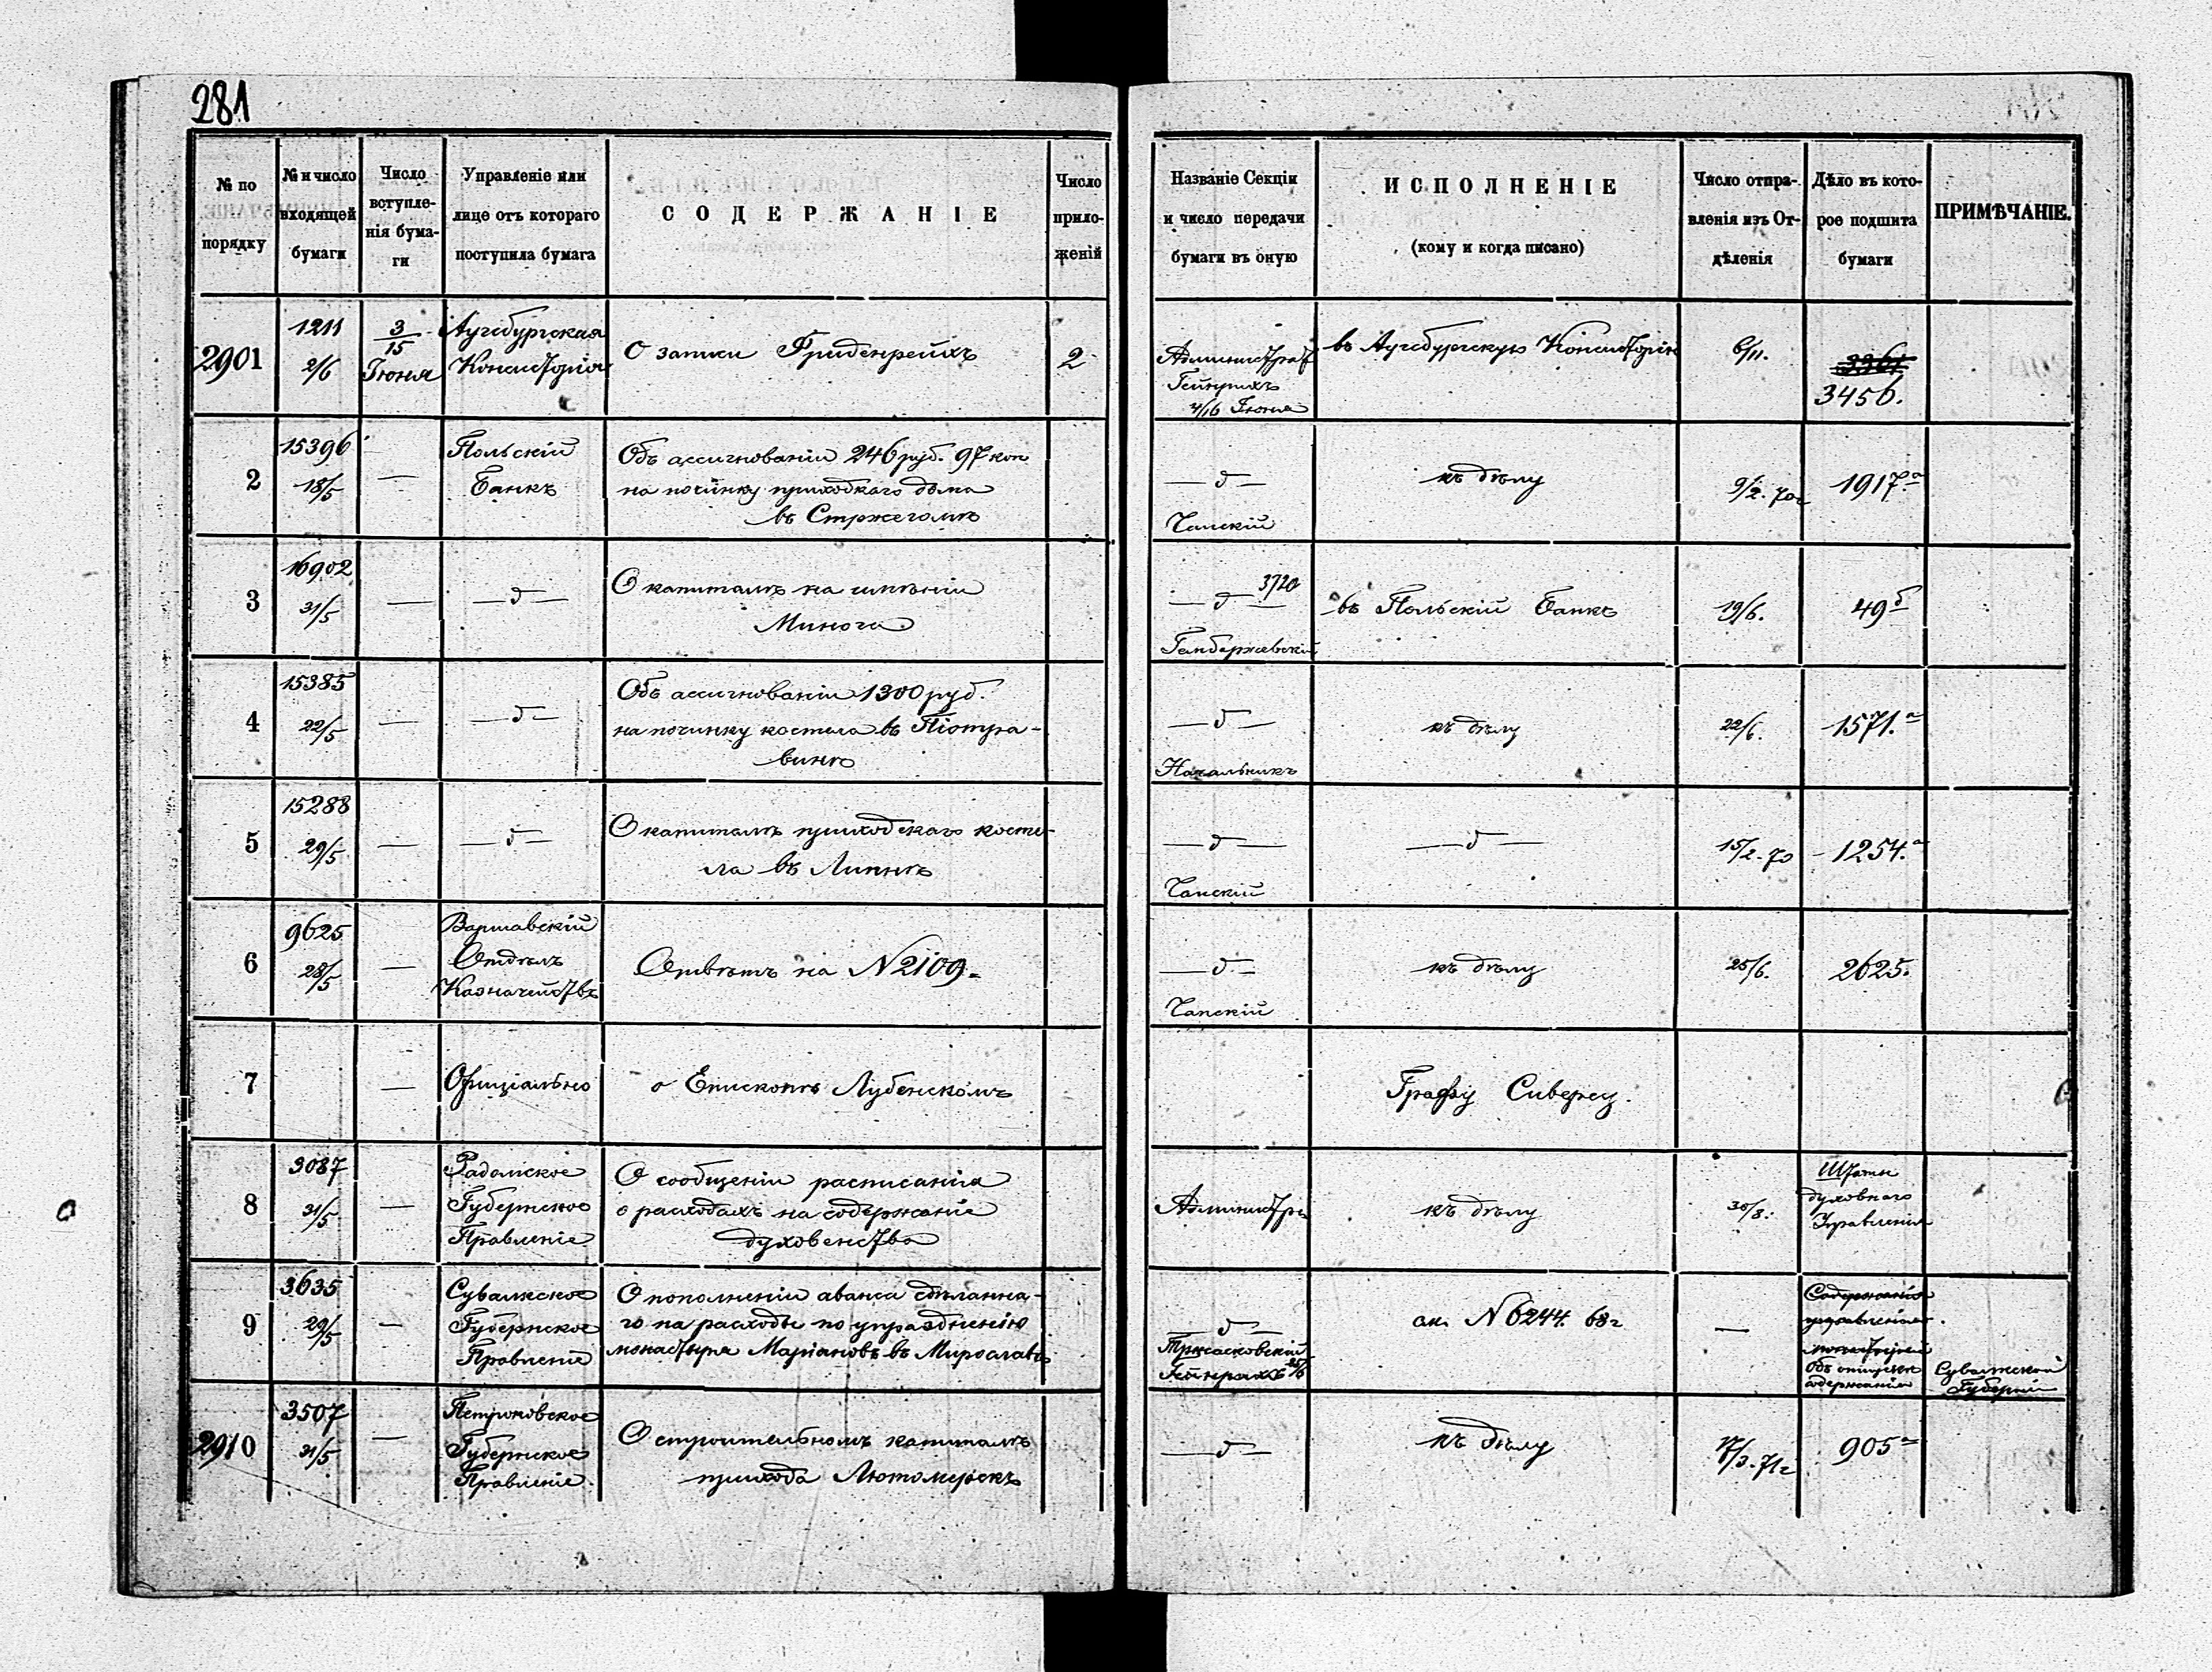 281
№ по порядку
№ и число входящей бумаги
Число вступле-нія бума-ги
Управленіе или лице отъ котораго поступила бумага
СОДЕРЖАНІЕ
Число прило-женій
Названіе Секціи и число передачи бумаги въ оную
ИСПОЛНЕНІЕ
(кому и когда писано)
Число отпра-вленія изъ От-дѣленія
Дѣло въ кото-рое подшита бумаги
ПРИМѢЧАНІЕ.
2901
1211
2/6
3/15
Іюня
Аугсбургская
Консисторія
О записи
2
Администрат
Гейнрихъ
4/16 Іюня
въ Аугсбургскую Консисторію
6/11.
3456.
2
15396
18/5
—
Польскій
Банкъ
Объ ассигнованіи 246 руб. 97 коп
на починку приходскаго дома
въ Стржегомѣ
— д —
Чапскій
къ дѣлу
9/2. 70 г
1917 а
3
16902
31/5
—
— д —
О капиталѣ на имѣніи
Минога
3720
— д —
въ Польскій Банкъ
19/6.
49 б
4
15385
22/5
—
— д —
Объ ассигнованіи 1300 руб.
на починку костела въ Піотра-
винѣ
— д —
Начальникъ
къ дѣлу
22/6.
1571. а
5
15288
29/5
—
— д —
О капиталѣ приходскаго косте-
ла въ Липнѣ
— д —
Чапскій
— д —
15/2. 70
1254. а
6
9625
28/5
—
Варшавскій
Отдѣлъ
Казначействъ
Отвѣтъ на N 2109.
— д —
Чапскій
къ дѣлу
25/6.
2625.
7
—
Офиціально
о Епископѣ Лубенскомъ
Графу Сиверсу.
8
3087
31/5
—
Радомское
Губернское
Правленіе
О сообщеніи расписанія
о расходахъ на содержаніе
духовенства
Администр
къ дѣлу
30/8.
Штаты
духовнаго
Управленія
9
3635
29/5
—
Сувалкское
Губернское
Правленіе
О пополненіи аванса сдѣланна-
го на расходы по упраздненію
монастыря Маріановъ въ Мирославѣ
— д —
Гейнрихъ
ак. N 6244. 68 г
—
Содержанія
содержанія
Сувалкской
Губерніи
2910
3507
31/5
—
Петроковское
Губернское
Правленіе.
О строительномъ капиталѣ
прихода Лютомерскъ
— д —
къ дѣлу
17/3. 71 г
905 а